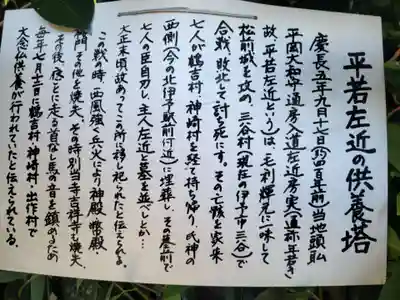 平若左近の供養塔
慶長五年九月十七日(約四百年前)当地頭職
平岡大和守通房入道左近房実(通称平若き
故、平若左近という)は、毛利輝元に一味して
松前城を攻め、三谷村(現在の伊予市三谷)で
合戦、敗北して討ち死にす。その亡骸を家来
七人が鶴吉村・神崎村を経て持ち帰り、氏神の
西側(今の北伊予駅前付近)に埋葬し、その墓前で
七人の臣自刃し、主人左近と墓を並べしとか…
大正末頃故あってこの所に移し祀られたと伝えらる。
この戦の時、西風強く兵火により神殿、幣殿・
楼門その他を焼失、その時別当寺吉祥寺も焼失、
その後、夜ごとに走る首なし馬の音を鎮めるため
毎年七月十七日に鶴吉村・神崎村・出作村で
大念仏供養が行われていたと伝えられている。